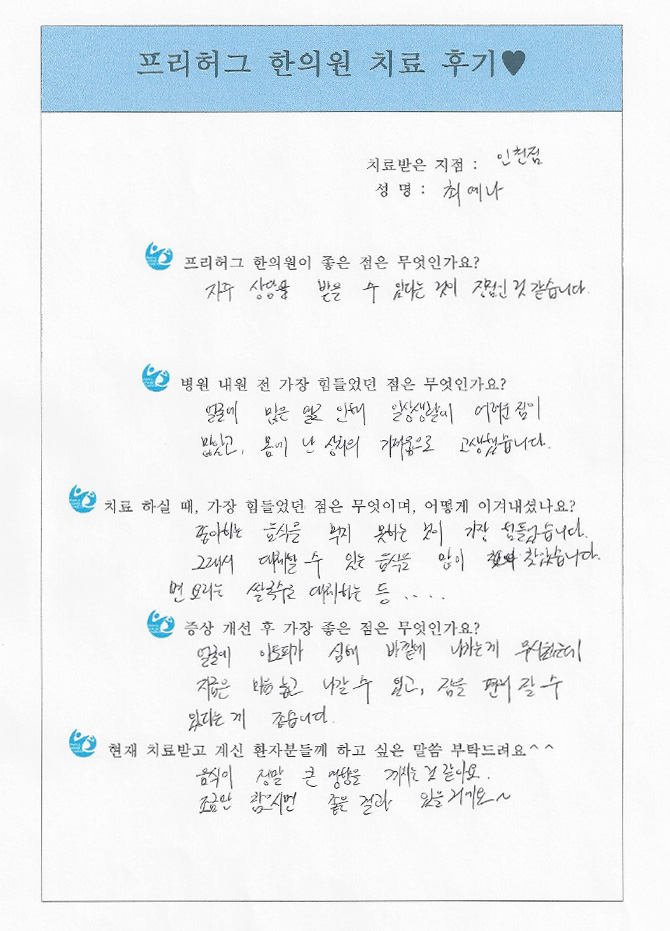 프리허그 한의원 치료 후기♥
치료받은 지점 : 인천점
성 명 : 최예나
프리허그 한의원이 좋은 점은 무엇인가요?
자주 상담을 받을 수 있다는 것이 장점인 것 같습니다.
병원 내원 전 가장 힘들었던 점은 무엇인가요?
얼굴에 많은 열로 인해 일상생활에 어려운 점이
많았고, 몸에 난 상처의 가려움으로 고생했습니다.
치료 하실 때, 가장 힘들었던 점은 무엇이며, 어떻게 이겨내셨나요?
좋아하는 음식을 먹지 못하는 것이 가장 힘들었습니다.
그래서 대체할 수 있는 음식을 많이 찾았습니다.
면 요리는 쌀국수로 대체하는 등 ....
증상 개선 후 가장 좋은 점은 무엇인가요?
얼굴에 아토피가 심해 바깥에 나가는게 무서웠는데
지금은 마음 놓고 나갈 수 있고, 잠을 편히 잘 수
있다는 게 좋습니다.
현재 치료받고 계신 환자분들께 하고 싶은 말씀 부탁드려요^^
음식이 정말 큰 영향을 끼치는 것 같아요.
조금만 참으시면 좋은 결과 있을 거에요~